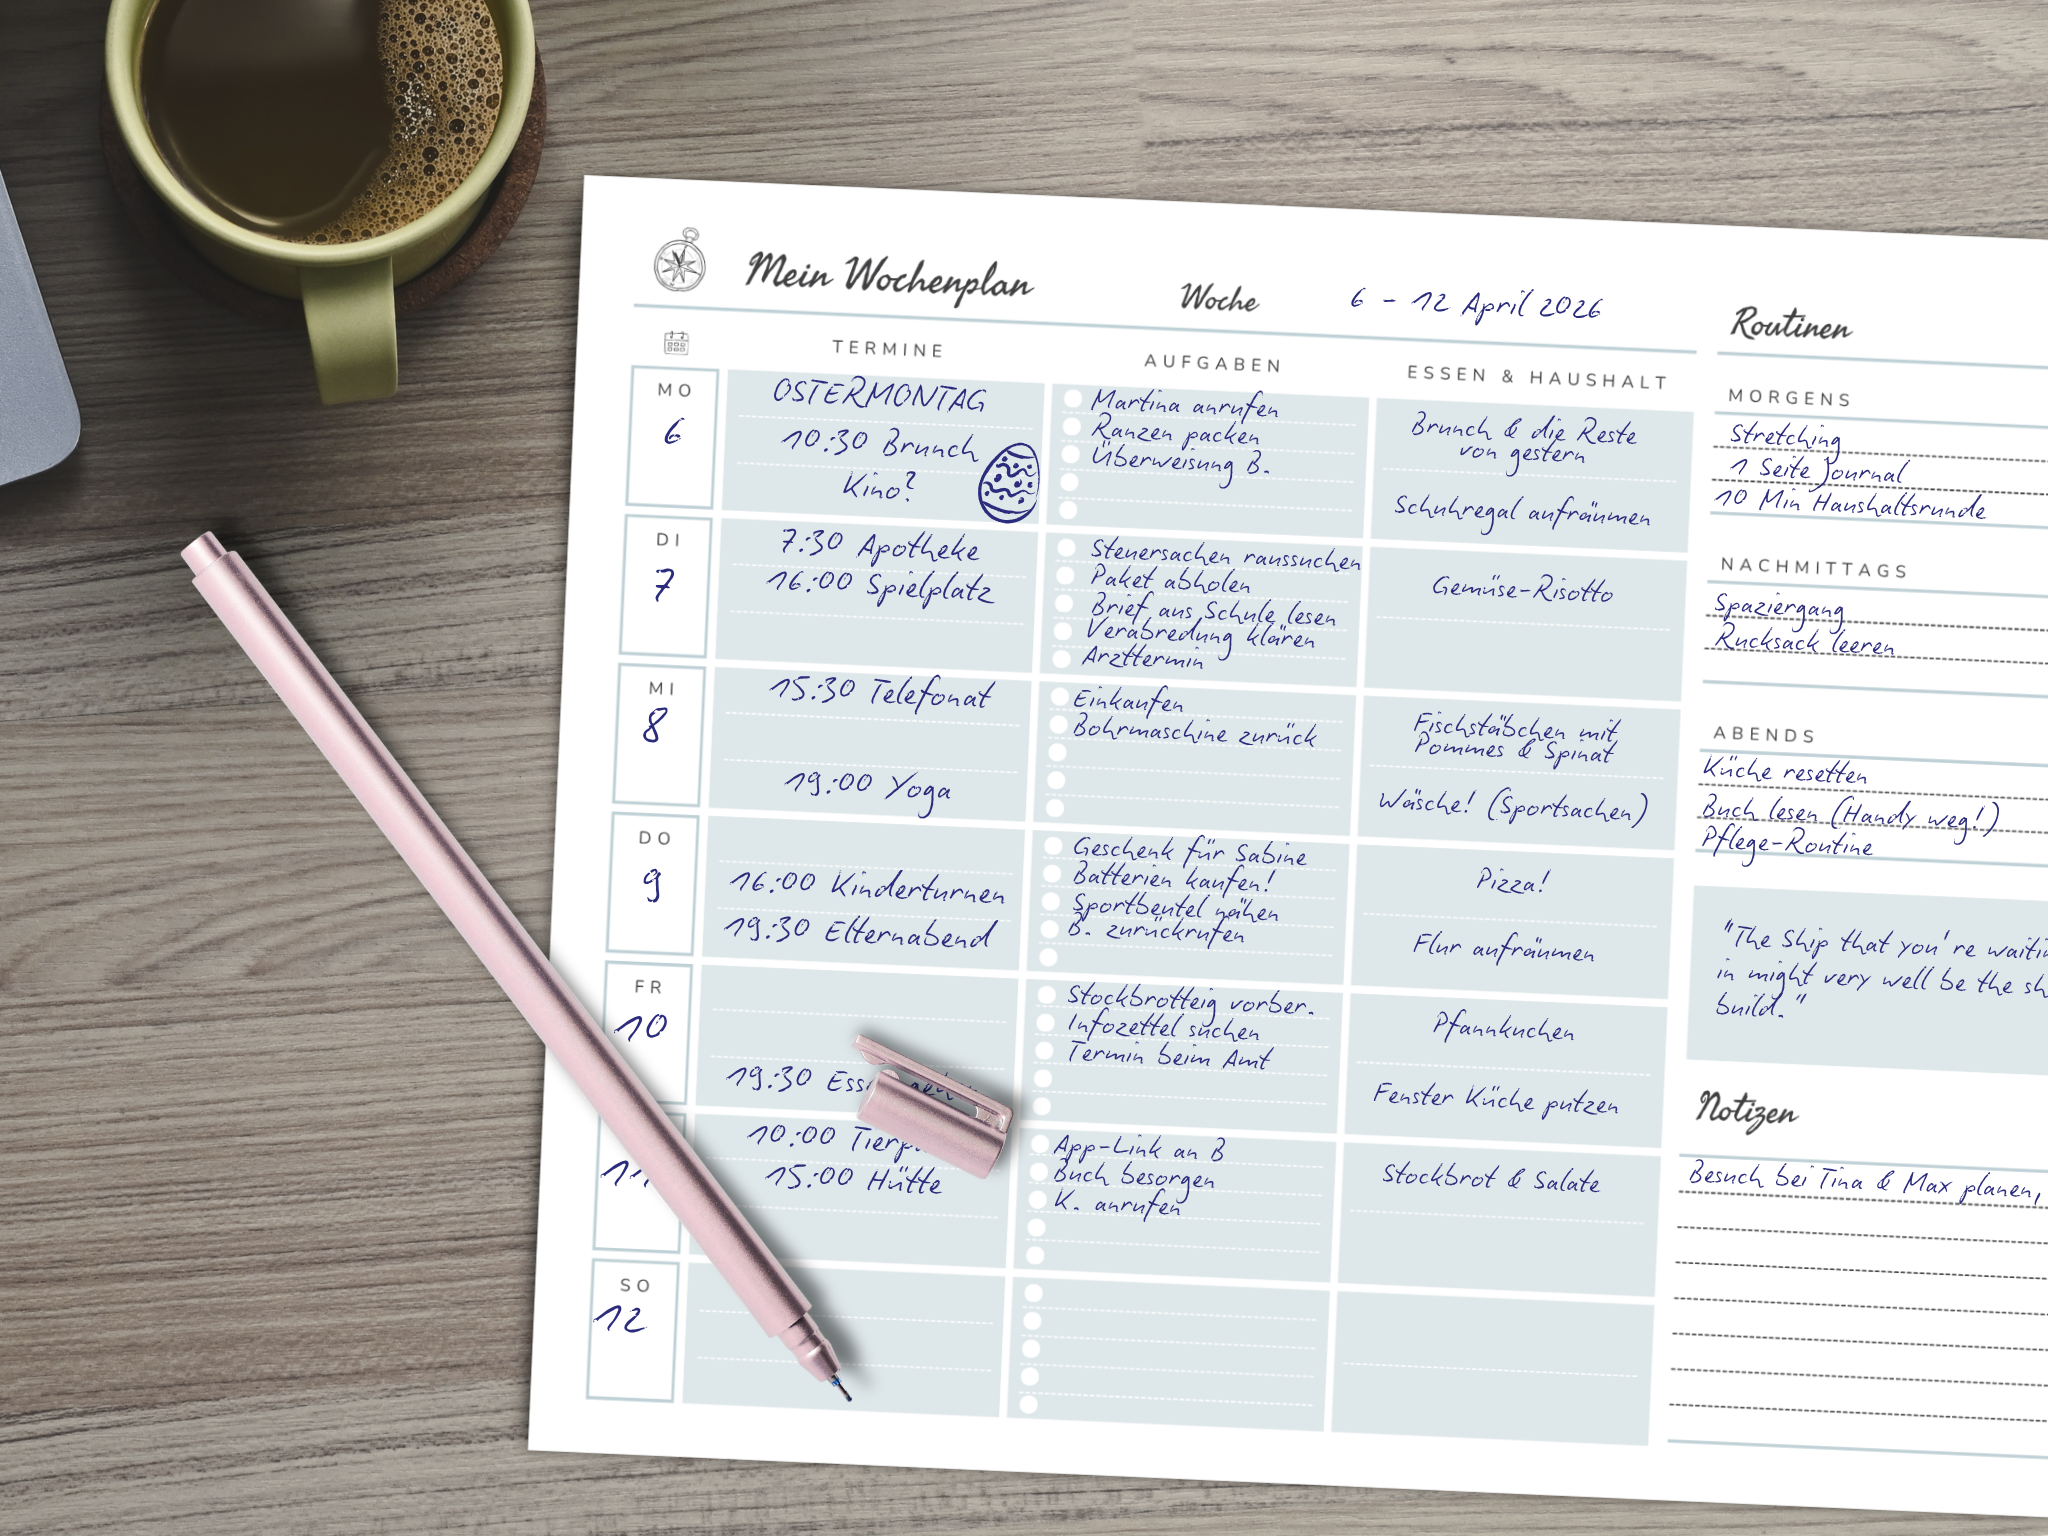 Mein Wochenplan
Woche
6 - 12 April 2026
TERMINE
AUFGABEN
ESSEN & HAUSHALT
MO
6
OSTERMONTAG
10:30 Brunch
Kino?
Martina anrufen
Ranzen packen
Überweisung B.
Brunch & die Reste
von gestern
Schuhregal aufräumen
DI
7
7:30 Apotheke
16:00 Spielplatz
Steuersachen raussuchen
Paket abholen
Brief aus Schule lesen
Verabredung klären
Arzttermin
Gemüse-Risotto
MI
8
15:30 Telefonat
19:00 Yoga
Einkaufen
Bohrmaschine zurück
Fischstäbchen mit
Pommes & Spinat
Wäsche! (Sportsachen)
DO
9
16:00 Kinderturnen
19:30 Elternabend
Geschenk für Sabine
Batterien kaufen!
Sportbeutel nähen
B. zurückrufen
Pizza!
Flur aufräumen
FR
10
19:30
Stockbrotteig vorber.
Infozettel suchen
Termin beim Amt
Pfannkuchen
Fenster Küche putzen
11
10:00
15:00 Hütte
App-Link an B
Buch besorgen
K. anrufen
Stockbrot & Salate
SO
12
Routinen
MORGENS
Stretching
1 Seite Journal
10 Min Haushaltsrunde
NACHMITTAGS
Spaziergang
Rucksack leeren
ABENDS
Küche resetten
Buch lesen (Handy weg!)
Pflege-Routine
"The Ship that you're
in might very well be the
build."
Notizen
Besuch bei Tina & Max planen,